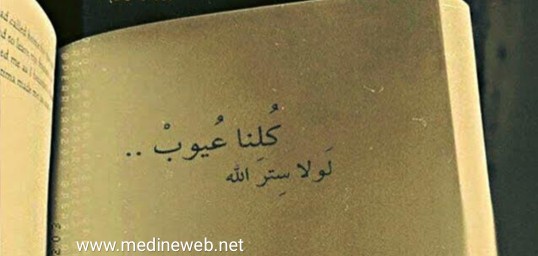 كُلنا عُيوبْ ..
لَولا سِتر الله
www.medineweb.net